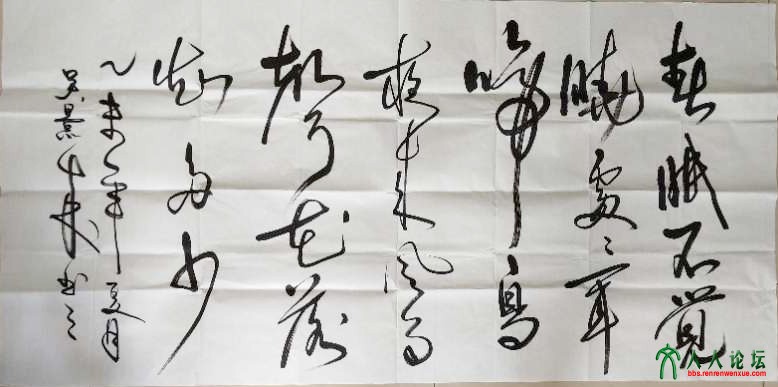 春眠不覺
曉處々聞
啼鳥
夜来风雨
聲花落
知多少
乙未年夏月
吴景书之
人人论坛
bbs.renrenwenxue.com